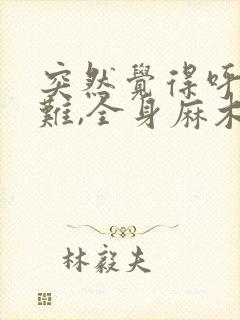 突然覺得呼
難,全身麻木
林毅夫